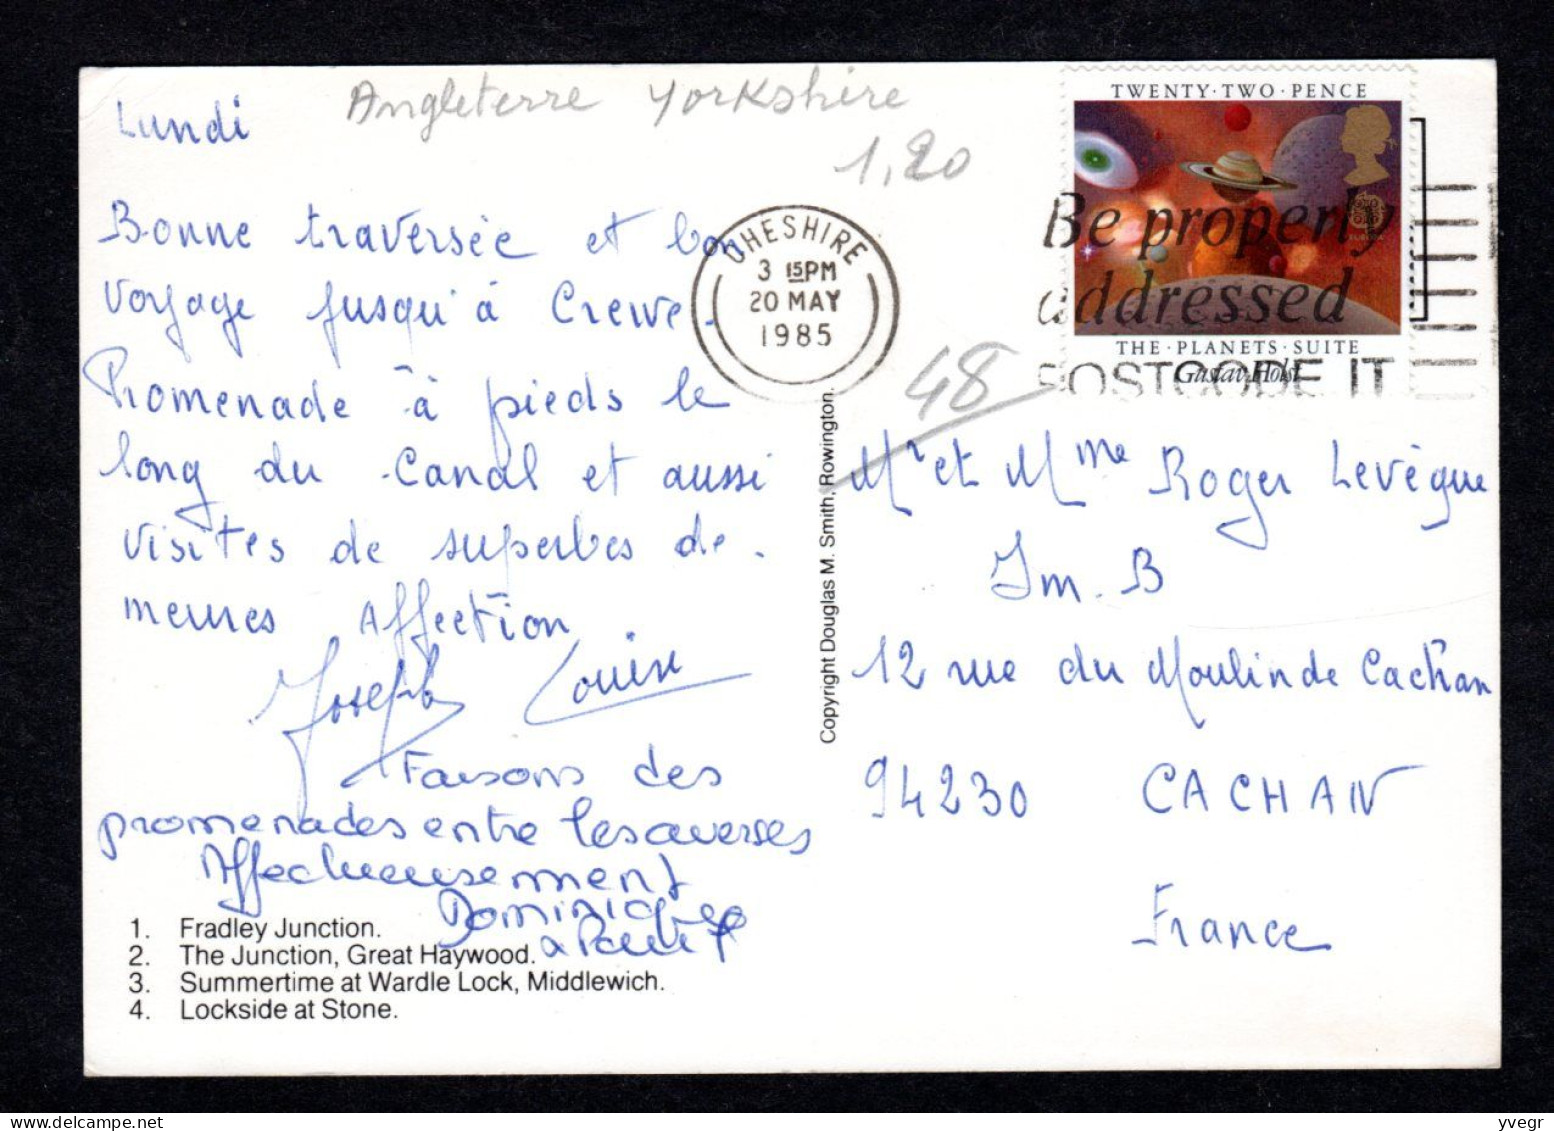 Angleterre Yorkshire
1,20
Lundi
Bonne traversée et bon
voyage jusqu'à Crewe.
Promenade à pieds le
long du Canal et aussi
visites de superbes de-
meures Affection
Joseph Louise
Faisons des
promenades entre les averses
Affectueusement
Dominique
1. Fradley Junction.
2. The Junction, Great Haywood.
3. Summertime at Wardle Lock, Middlewich.
4. Lockside at Stone.
Copyright Douglas M. Smith, Rowington.
CHESHIRE
3 15PM
20 MAY
1985
TWENTY·TWO·PENCE
EUROPA
THE·PLANETS·SUITE
Gustav Holst
Be properly
addressed
POSTCODE IT
48
Mr et Mme Roger Levèque
Im. B
12 rue du Moulin de Cachan
94230 CACHAN
France
yvegr